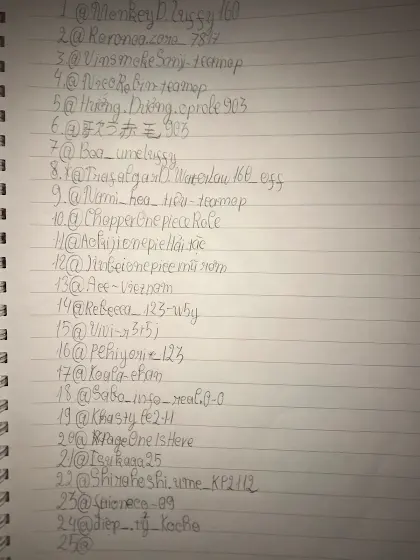 1 @MonkeyD.Luffy160
2.@Roronoa.zoro_7817
3.@VinsmokeSanji-teamop
4.@NicoRobin-teamop
5@Hướng.Dương.cprole903
6.@歌う赤毛903
7@Boa_umeluffy
8.@TrafalgarD.Waterlaw160_off
9.@Nami_hoa_tiêu-teamop
10.@ChopperOnepieceRole
11@AokijionepieHải tặc
12@Jinbeionepiecemũ rơm
13@Ace-Vietnam
14@Rebecca_123-w5y
15@Vivi-r3t5j
16@pehiyorie_123
17@Koala-chan
18.@Sabo_info_real.0-0
19@Khastyfe211
20@PageOneIsHere
21@Isukaaa25
22@Shirahoshi.ume_KP2112
23@faioneca-09
24@diep_.tỷ_Kocho
25@